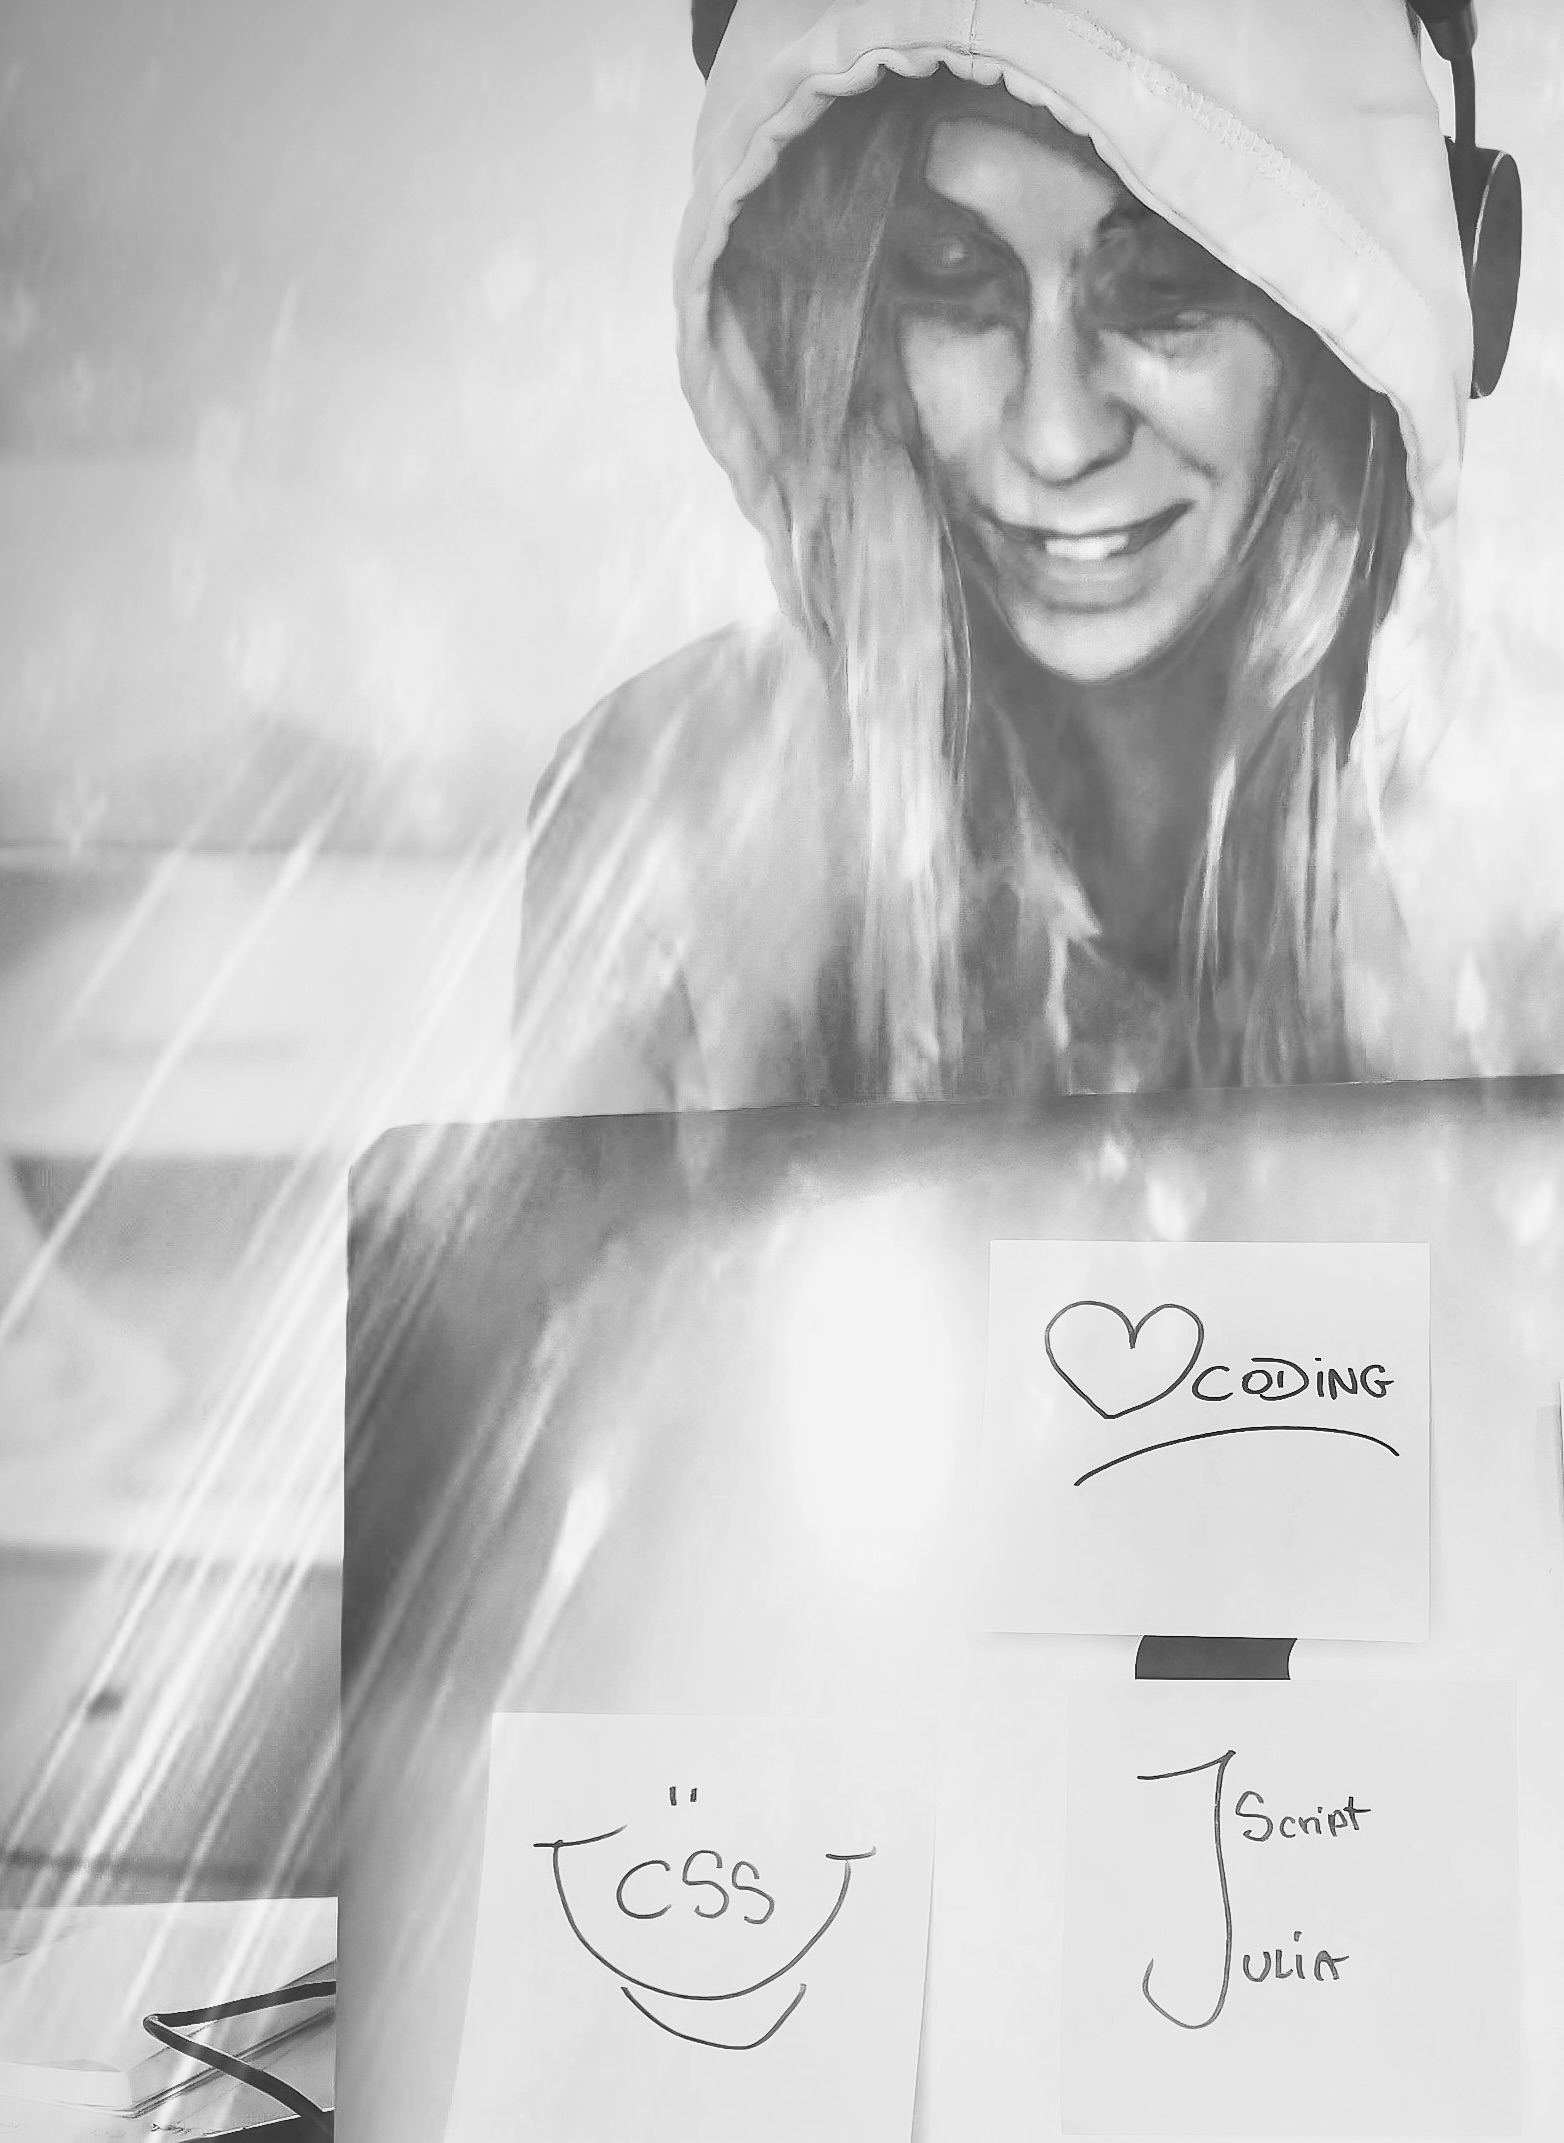 CODiNG
CSS
JScript
JULiA